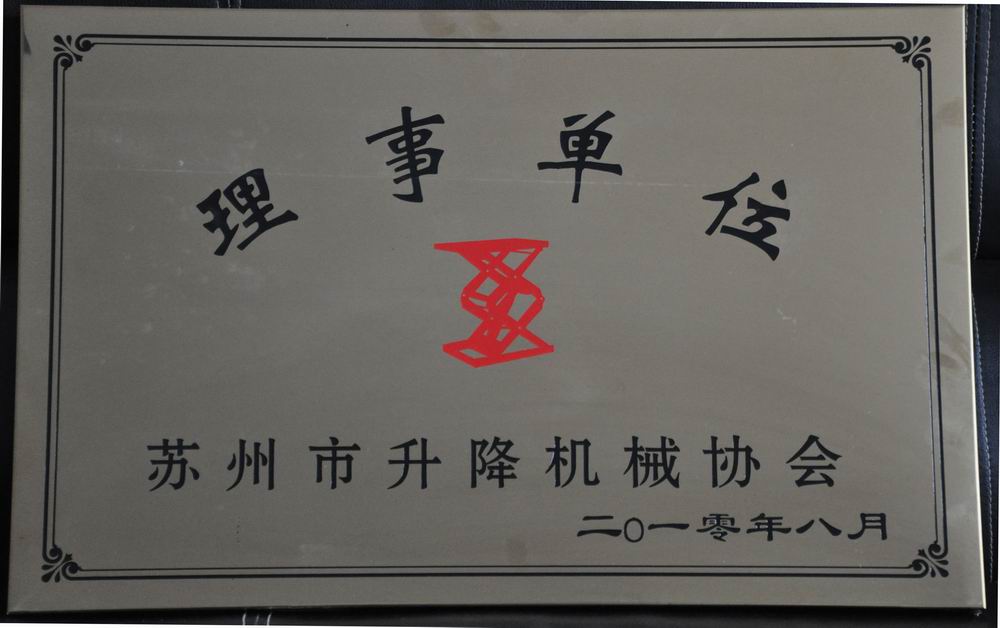 理事单位
苏州市升降机械协会
二〇一零年八月